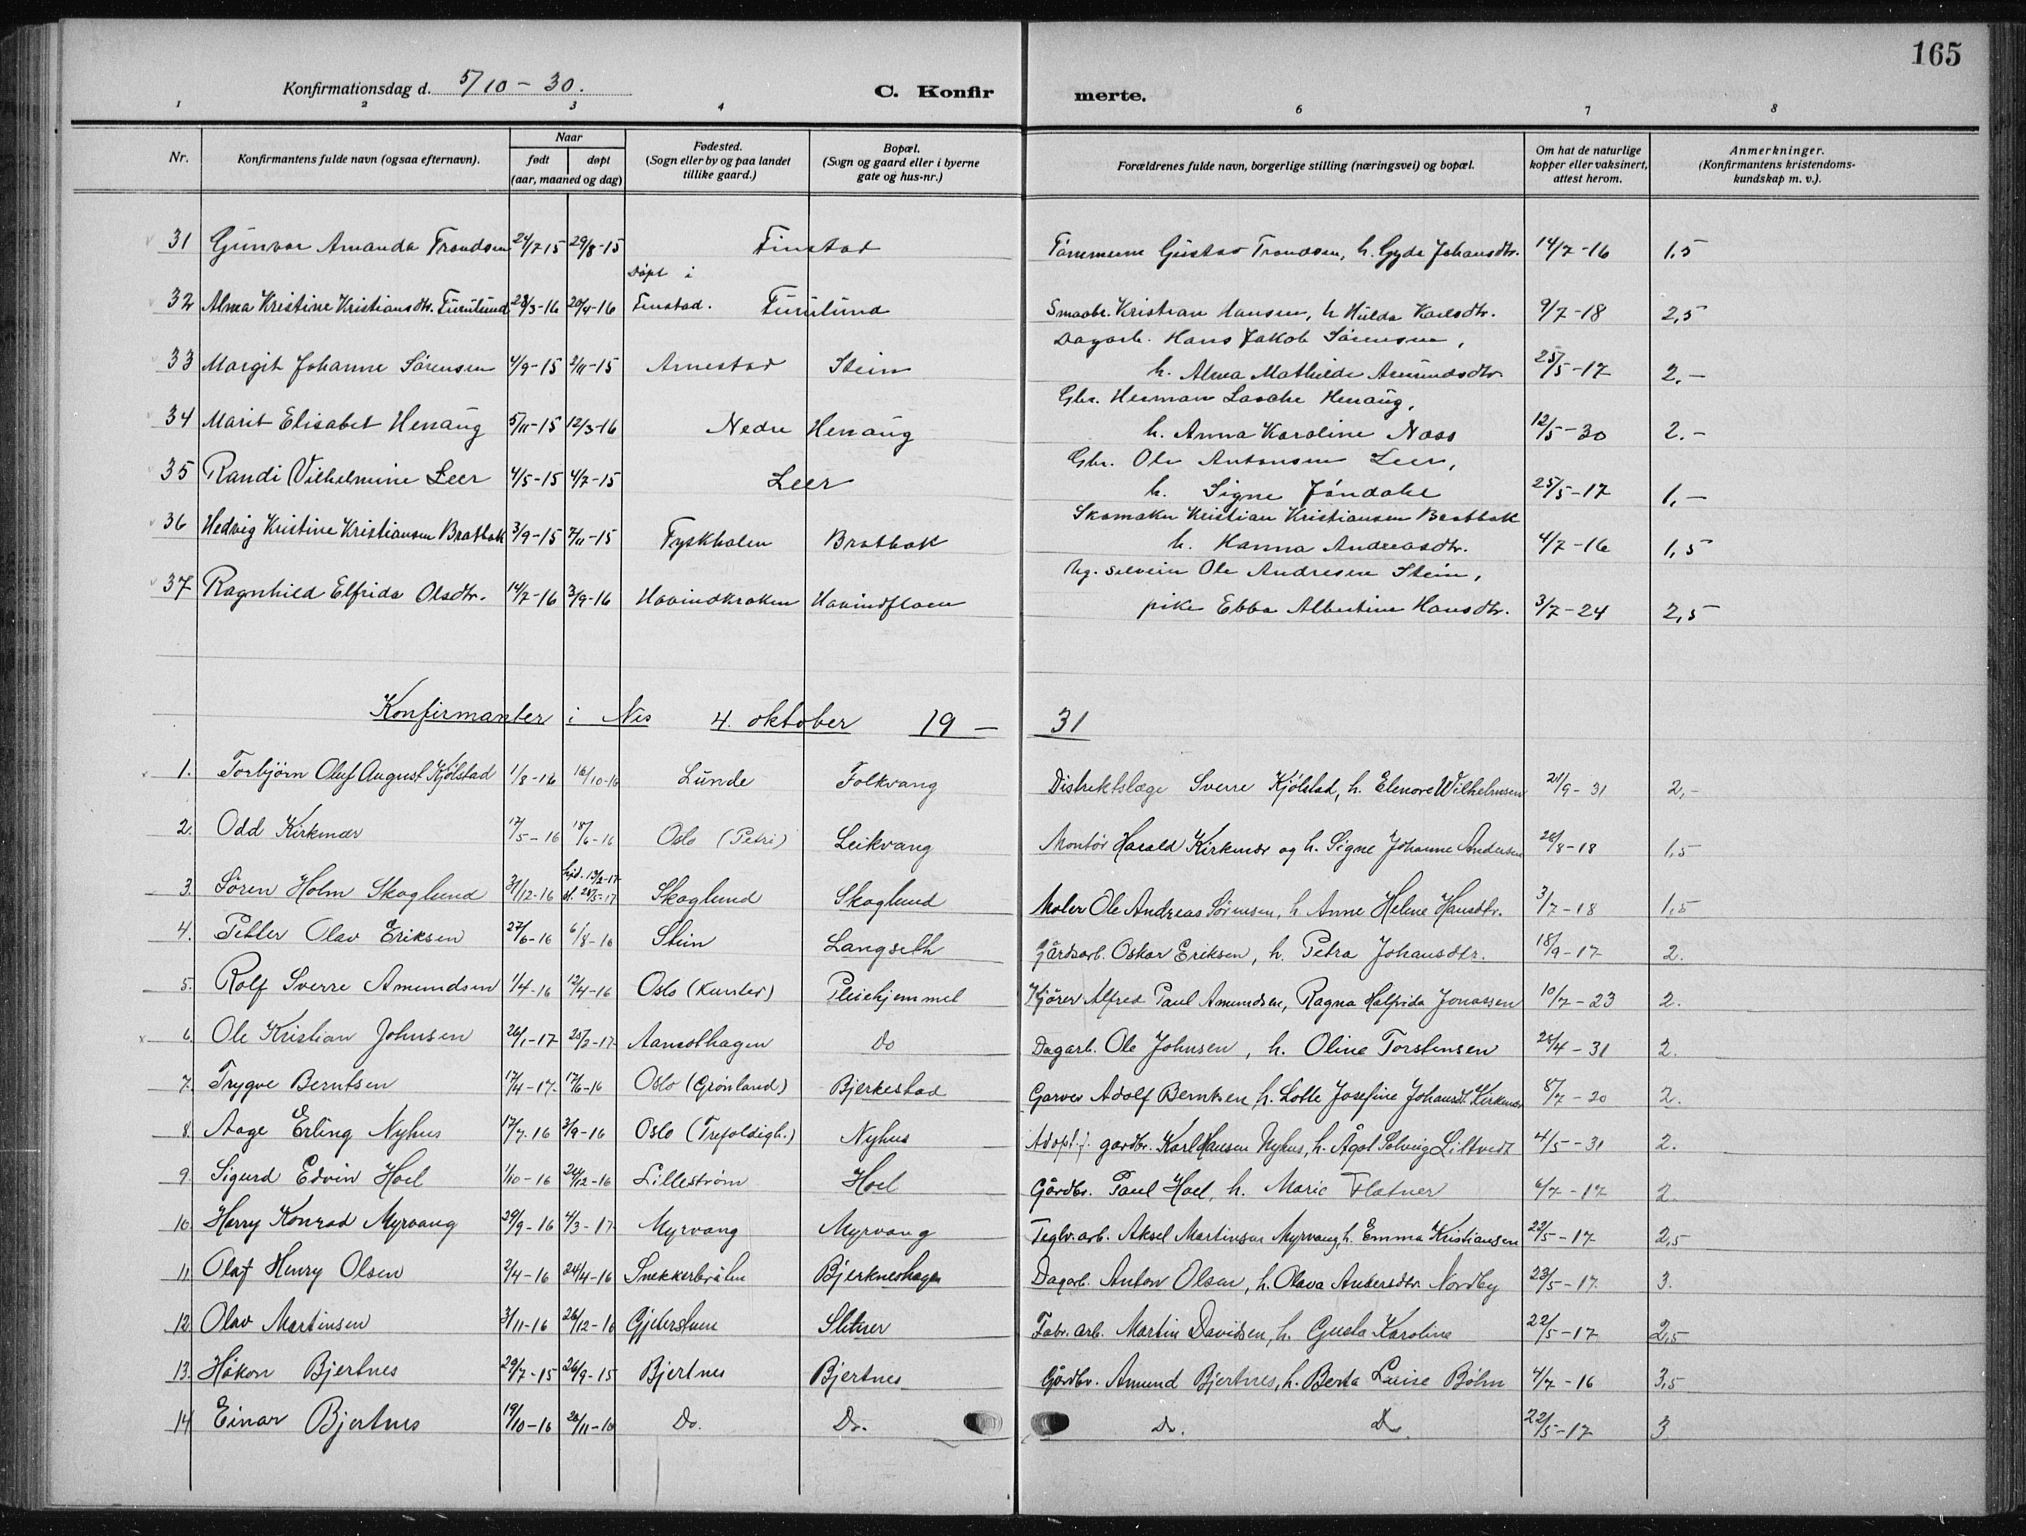 165
Konfirmationsdag d. 5/10 - 30.
C. Konfir merte.
1 2 3 4 6 7 8
Nr. Konfirmantens fulde navn (ogsaa efternavn). Naar født døpt (aar, maaned og dag) Fødested. (Sogn eller by og paa landet tillike gaard.) Bopæl. (Sogn og gaard eller i byerne gate og hus-nr.) Forældrenes fulde navn, borgerlige stilling (næringsvei) og bopæl. Om hat de naturlige kopper eller vaksinert, attest herom. Anmerkninger. (Konfirmantens kristendoms-kundskap m. v.).
31 Gunvor Amanda Trondsen 24/7-15 29/8-15 Finstad Tømmerm Gustav Trondsen, h. Gyda Johansdtr. 14/7-16 1,5
Døpt i
32 Alma Kristine Kristiansdtr. Furulund 28/3-16 20/4-16 Finstad. Furulund Smaabr. Kristian Hansen, h Hulda Karlsdtr. 9/7-18 2,5
Dagarb. Hans Jakob Sørensen,
33 Margit Johanne Sørensen 4/9-15 2/11-15 Arnestad Stein h. Alma Mathilde Amundsdtr. 25/5-17 2.-
Gbr. Herman Lasche Henaug,
34 Marit Elisabet Henaug 5/11-15 12/3-16 Nedre Henaug h. Anna Karoline Næss 12/5-30 2.-
Gbr. Ole Antonsen Leer,
35 Randi Vilhelmine Leer 4/5-15 4/7-15 Leer h. Signe Jøndahl 25/5-17 1,-
Skomaker Kristian Kristiansen Bratbak
36 Hedvig Kristine Kristiansen Bratbak 3/9-15 7/11-15 Tyskholen Bratbak h. Hanna Andreasdtr. 4/7-16 1,5
Ug. selvein Ole Andresen Stein,
37 Ragnhild Elfrida Olsdtr. 14/7-16 3/9-16 Haavindkroken Haavindfloen pike Ebba Albertine Hansdtr. 3/7-24 2,5
Konfirmanter i Nes 4. oktober 19 - 31
1. Torbjørn Oluf August Kjølstad 1/8-16 16/10-16 Lunde Folkvang Distriktslæge Sverre Kjølstad, h. Elenore Wilhelmsen 21/9-31 2,-
2. Odd Kirkmær 17/5-16 18/6-16 Oslo (Petri) Leikvang Montør Harald Kirkmær og h. Signe Johanne Andersen 28/8-18 1,5
3. Søren Holm Skoglund 31/12-16 hjd. 13/2-17 st. 28/5-17 Skoglund Skoglund Maler Ole Andreas Sørensen, h Anne Helene Hansdtr. 3/7-18 1,5
4. Petter Olav Eriksen 27/6-16 6/8-16 Stein Langseth Gårdsarb. Oskar Eriksen, h. Petra Johansdtr. 18/9-17 2.
5. Rolf Sverre Amundsen 1/4-16 12/4-16 Oslo Pleiehjemmet Kjører Alfred Paul Amundsen, Ragna Halfrida Jonassen 10/7-23 2.
6. Ole Kristian Johnsen 26/1-17 25/2-17 Aamothagen Do Dagarb. Ole Johnsen, h. Oline Torstensen 28/4-31 2.
7. Trygve Berntsen 17/4-17. 17/6-16 Oslo (Grønland) Bjerkestad Garver Adolf Berntsen, h. Lotte Josefine Johansdt. Kirkmær 8/7-20 2.
8. Aage Erling Nyhus 17/7-16 3/9-16 Oslo (Trefoldigh.) Nyhus Adopt. f. gardbr. Karl Hansen Nyhus, h. Ågot Solveig Liltvedt 4/5-31 2.
9. Sigurd Edvin Hoel 1/10-16 26/12-16 Lillestrøm Hoel Gårdbr. Paul Hoel, h. Marie Flatner 6/7-17 2.
10. Harry Konrad Myrvang 29/9-16 4/3-17 Myrvang Myrvang Teglv.arb. Aksel Martinsen Myrvang, h. Emma Kristiansen 22/5-17 2,5
11. Olaf Henry Olsen 2/4-16 24/4-16 Snekkerbråten Bjerkneshagen Dagarb. Anton Olsen, h. Olava Andersdtr. Nordby 23/5-17. 3.
12. Olav Martinsen 3/11-16 26/12-16 Gjeterstuen Sletner Fabr. arb. Martin Davidsen, h. Gusta Karoline 22/5-17 2,5
13. Håkon Bjertnes 29/7-15 26/9-15 Bjertnes Bjertnes Gårdbr. Amund Bjertnes, h. Berta Luise Bøhn 4/7-16 3,5
14. Einar Bjertnes 19/10-16 26/11-16 Do. Do. Do. Do. 22/5-17 3